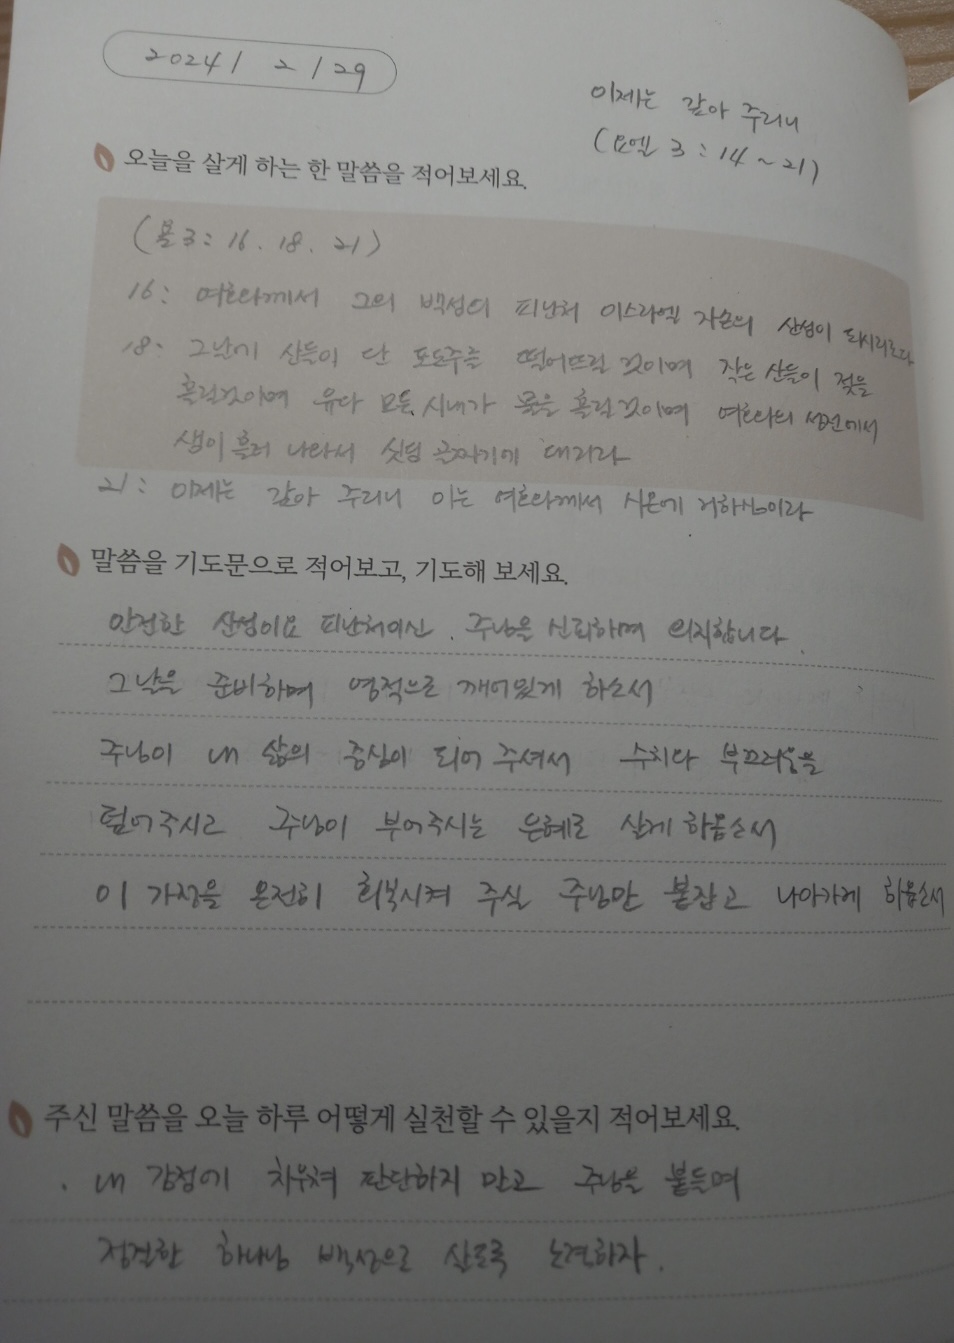 2024 / 2 / 29
이제는 갚아 주리니
(요엘 3 : 14 ~ 21)
오늘을 살게 하는 한 말씀을 적어보세요.
(욜 3 : 16. 18. 21)
16 : 여호와께서 그의 백성의 피난처 이스라엘 자손의 산성이 되시리로다
18. 그날에 산들이 단 포도주를 떨어뜨릴 것이며 작은 산들이 젖을
흘릴것이며 유다 모든 시내가 물을 흘릴 것이며 여호와의 성전에서
샘이 흘러 나와서 싯딤 골짜기에 대리라
21 : 이제는 갚아 주리니 이는 여호와께서 시온에 거하심이라
말씀을 기도문으로 적어보고, 기도해 보세요.
안전한 산성이요 피난처이신. 주님을 신뢰하며 의지합니다.
그날을 준비하며 영적으로 깨어있게 하소서
주님이 내 삶의 중심이 되어 주셔서 수치와 부끄러움을
덜어주시고 주님이 부어주시는 은혜로 살게 하옵소서
이 가정을 온전히 회복시켜 주실 주님만 붙잡고 나아가게 하옵소서
주신 말씀을 오늘 하루 어떻게 실천할 수 있을지 적어보세요.
. 내 감정에 치우쳐 판단하지 말고 주님을 붙들며
정결한 하나님 백성으로 살도록 노력하자.